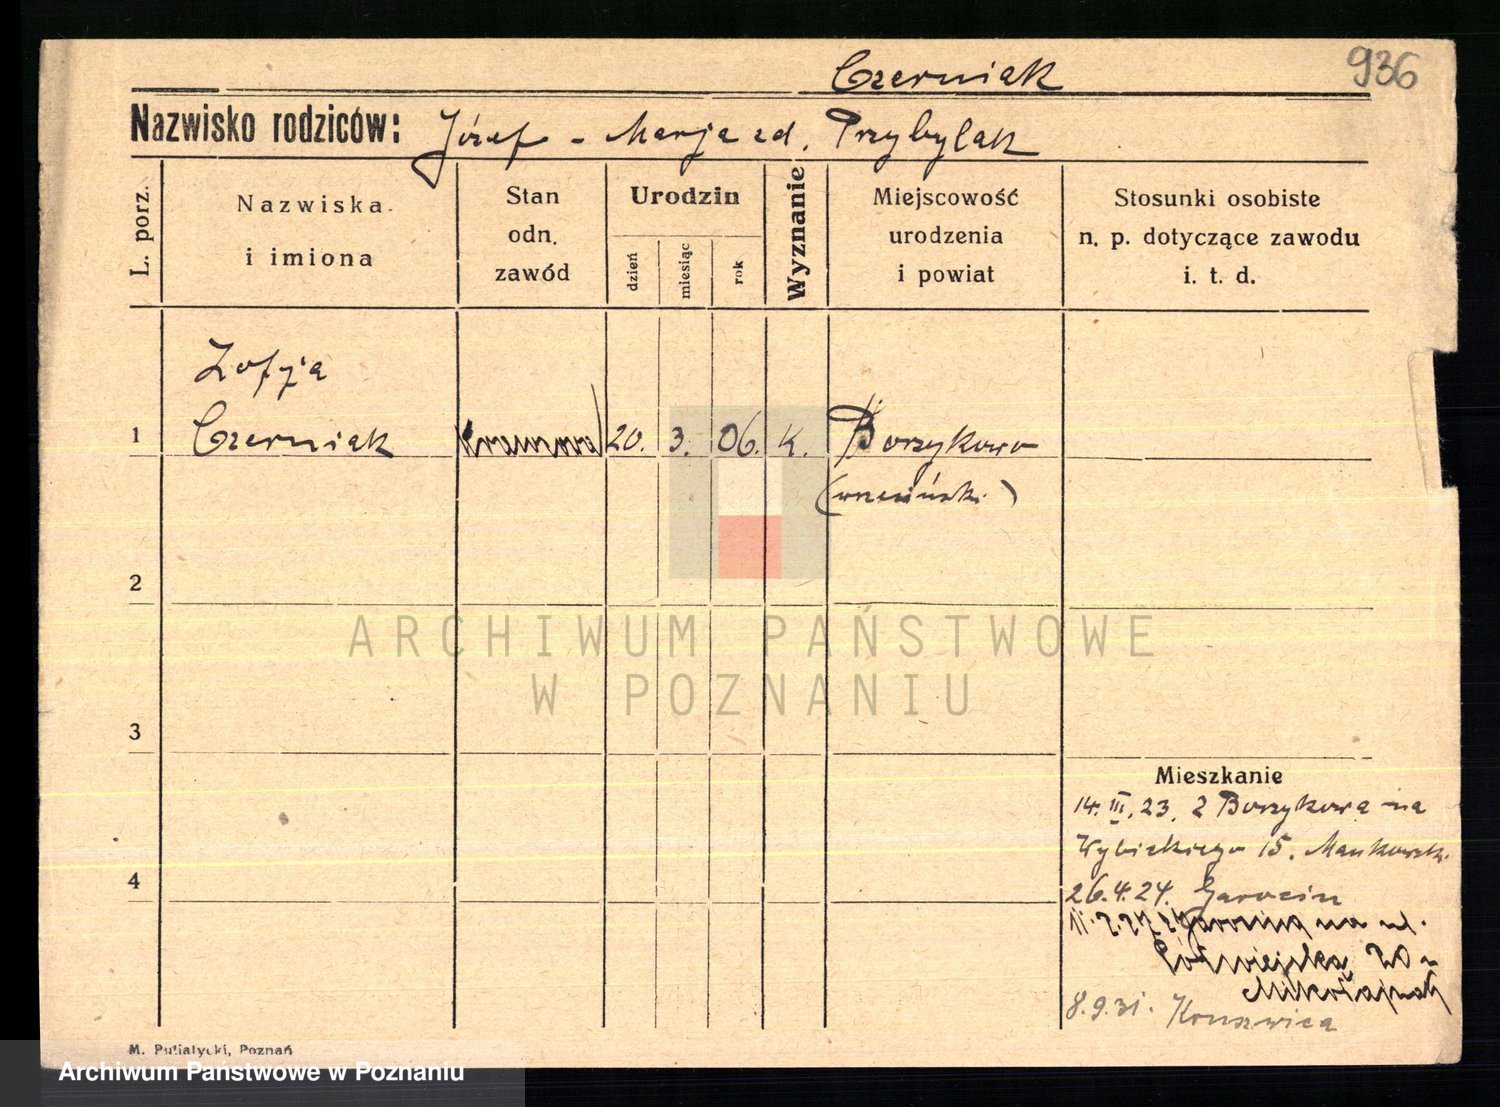 Czerniak 936
Nazwisko rodziców: Józef - Marja zd. Przybylak
L. porz.
Nazwiska
i imiona
Stan
odn.
zawód
Urodzin
dzień
miesiąc
rok
Wyznanie
Miejscowość
urodzenia
i powiat
Stosunki osobiste
n. p. dotyczące zawodu
i. t. d.
Zofja
1 Czerniak krawcowa 20. 3. 06. K. Borzykowo
(wrzesiński)
2
ARCHIWUM PAŃSTWOWE
W POZNANIU
3
Mieszkanie
14. III. 23. z Borzykowa na
Wybickiego 15. Mańkowski
4
26.4.24. Jarocin
na ul.
Półwiejska 20 u
Mikołajczak
8.9.31.
M. Putiatycki, Poznań
Archiwum Państwowe w Poznaniu